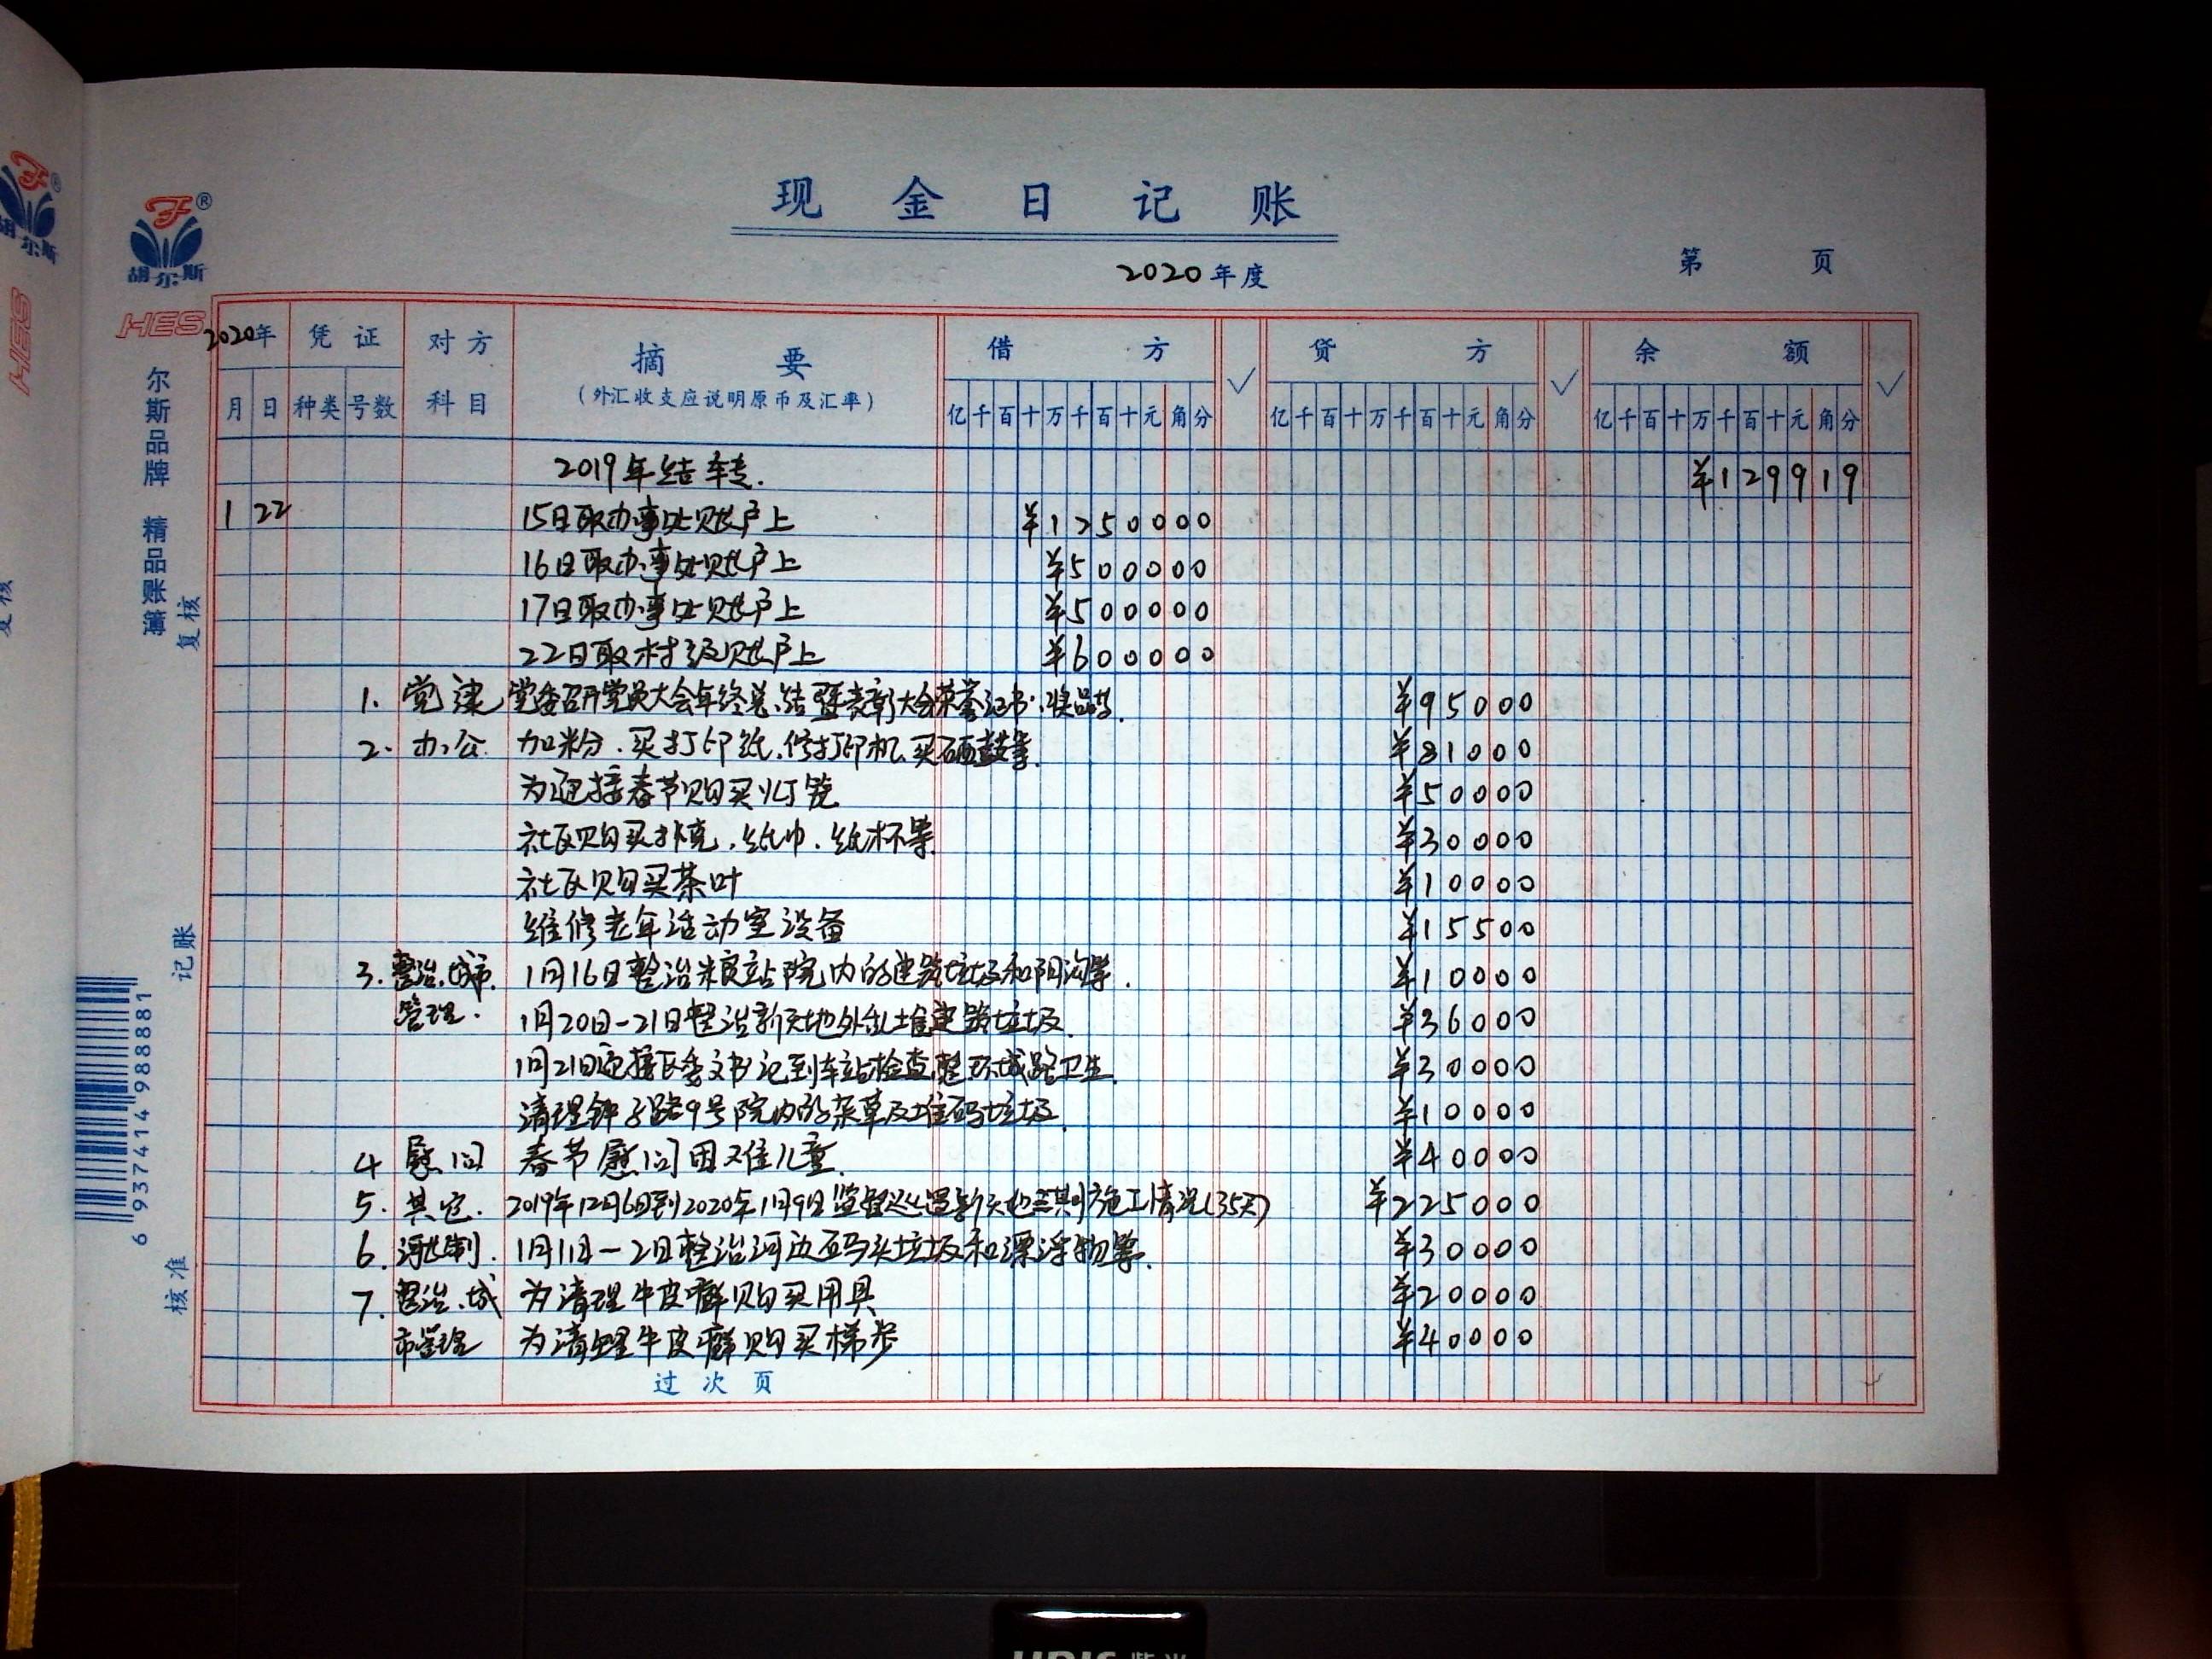 现金日记账
2020年度
第 页
胡尔斯
胡尔斯
HES
HES
尔斯品牌 精品账簿
复核
记账
核准
6 937414 988881
2020年 凭证 对方 摘要 借方 ✓ 贷方 ✓ 余额 ✓
月 日 种类 号数 科目 (外汇收支应说明原币及汇率) 亿千百十万千百十元角分 亿千百十万千百十元角分 亿千百十万千百十元角分
2019年结转. ¥129919
1 22 15日取办事处账户上 ¥1250000
16日取办事处账户上 ¥500000
17日取办事处账户上 ¥500000
22日取村级账户上 ¥600000
1. 党建 党委召开党员大会年终总结暨表彰大会荣誉证书、奖品等. ¥95000
2. 办公 加粉、买打印纸、修打印机、买硒鼓等. ¥81000
为迎接春节购买灯笼 ¥50000
社区购买扑克、纸巾、纸杯等 ¥30000
社区购买茶叶 ¥10000
维修老年活动室设备 ¥15500
3. 整治、城市 1月16日整治粮站院内的建筑垃圾和阴沟等. ¥10000
管理. 1月20日-21日整治新天地外乱堆建筑垃圾. ¥36000
1月21日迎接区委书记到车站检查,整环城路卫生. ¥30000
清理钟子路9号院内的杂草及堆码垃圾. ¥10000
4 慰问 春节慰问困难儿童. ¥40000
5. 其它. 2019年12月6日到2020年1月9日监督巡逻新天地三期施工情况(35天) ¥225000
6. 河长制. 1月1日-2日整治河边码头垃圾和漂浮物等. ¥30000
7. 整治、城 为清理牛皮癣购买用具 ¥20000
市管理 为清理牛皮癣购买梯步 ¥40000
过次页
UNIS 紫光